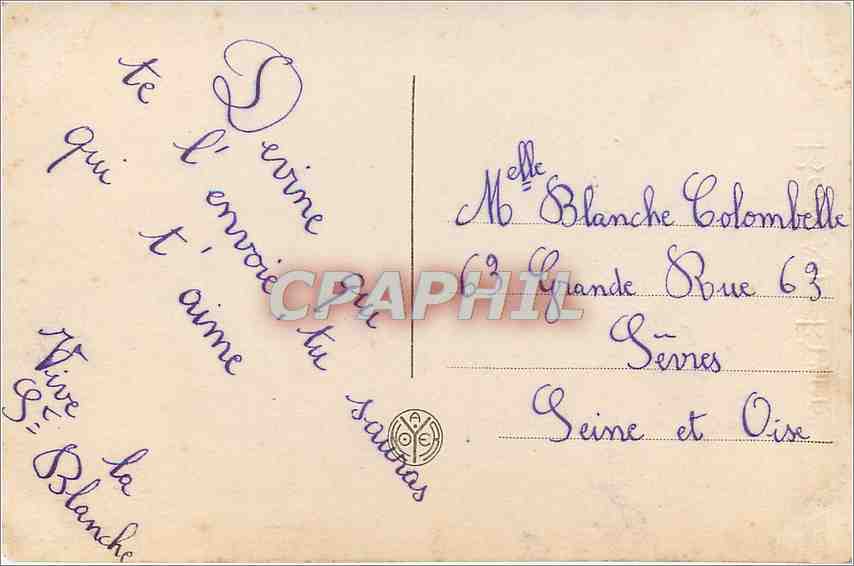 Devine qui
te l'envoie, tu sauras
qui t'aime
Vive la
Ste Blanche
Melle Blanche Colombelle
63 Grande Rue 63
Sèvres
Seine et Oise
CPAPHIL